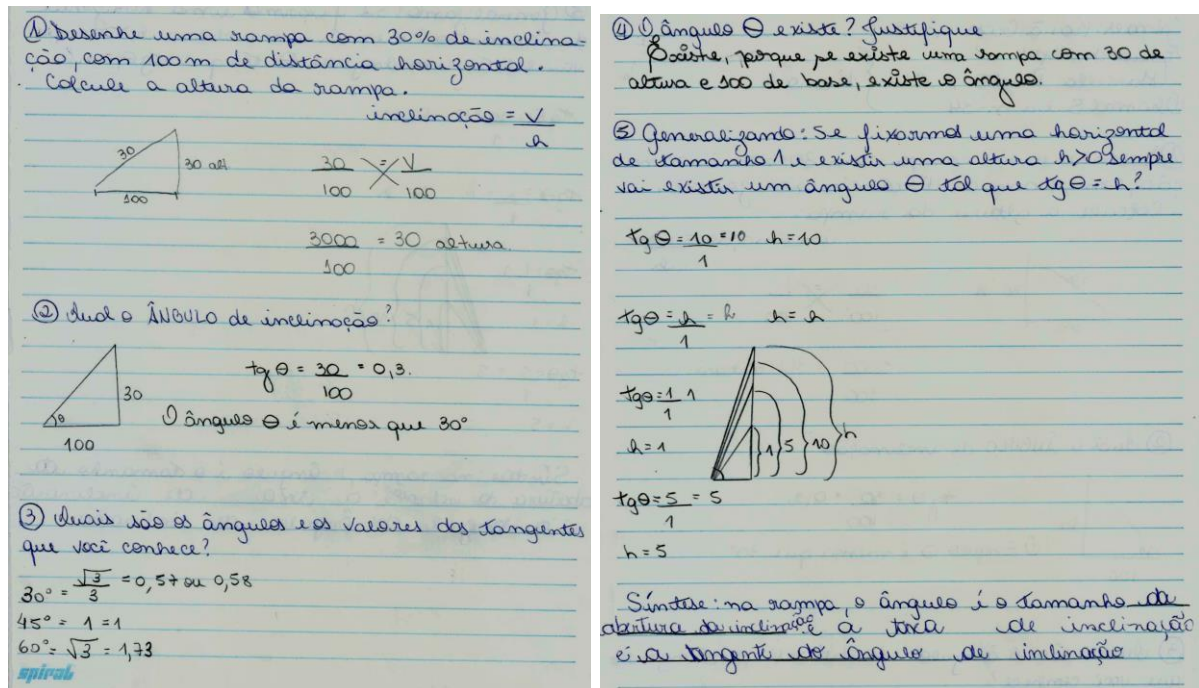 ① Desenhe uma rampa com 30% de inclina-
ção, com 100m de distância horizontal.
Calcule a altura da rampa.
inclinação = V
h
30
30 alt
100
30 = V
100 100
3000 = 30 altura.
100
② Qual o ÂNGULO de inclinação?
θ
30
100
tg θ = 30 = 0,3.
100
O ângulo θ é menos que 30°
③ Quais são os ângulos e os valores das tangentes
que você conhece?
30° = √3 = 0,57 ou 0,58
3
45° = 1 = 1
60° = √3 = 1,73
spiral
④ O ângulo θ existe? Justifique
Existe, porque se existe uma rampa com 30 de
altura e 100 de base, existe o ângulo.
⑤ Generalizando: Se fixarmos uma horizontal
de tamanho 1 e existir uma altura h>0 sempre
vai existir um ângulo θ tal que tg θ = h?
tg θ = 10 = 10 h = 10
1
tg θ = h = h h = h
1
tg θ = 1 1
1
h = 1
1 5 10 h
tg θ = 5 = 5
1
h = 5
Síntese: na rampa, o ângulo é o tamanho da
abertura da inclinação e a taxa de inclinação
é a tangente do ângulo de inclinação